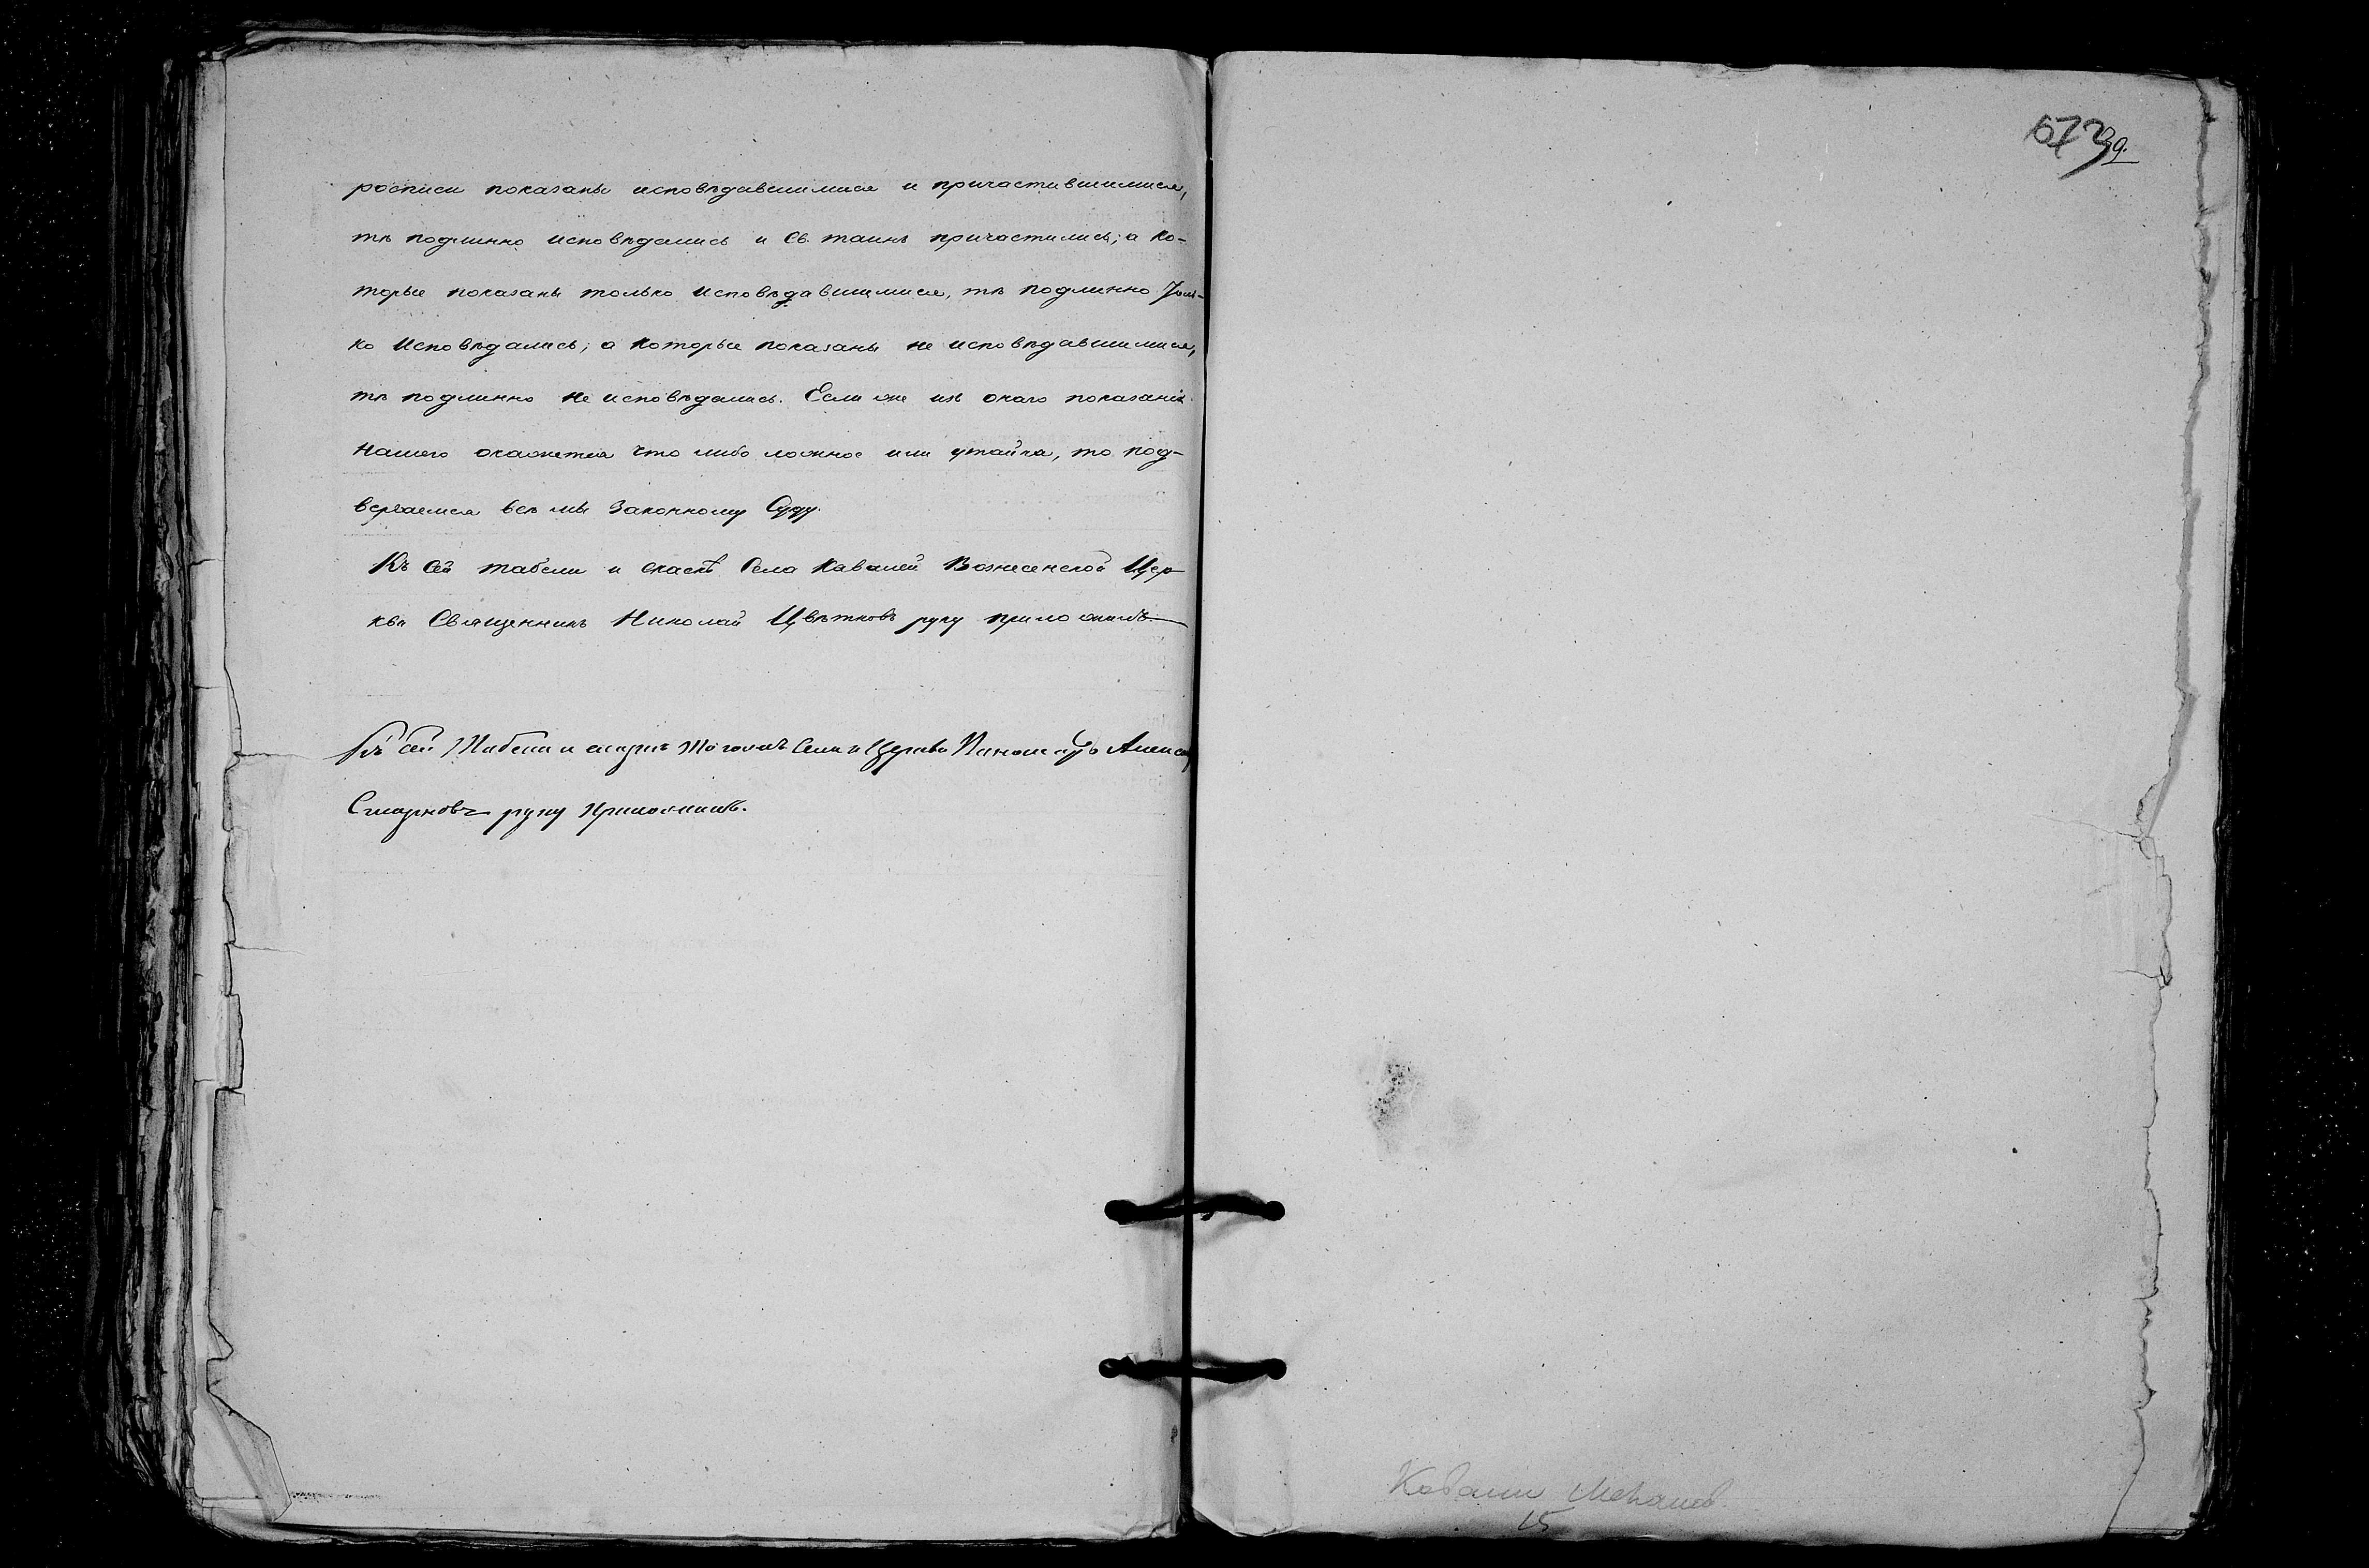 росписи показаны исповѣдавшимися и причастившимися,
тѣ подлинно исповѣдались и Св. таинъ причастились; а ко-
торые показаны только исповѣдавшимися, тѣ подлинно толь-
ко исповѣдались; а которые показаны не исповѣдавшимися,
тѣ подлинно не исповѣдались. Если же изъ онаго показанія
нашего окажется что либо ложное или утайка, то под-
вергаемся всѣ мы законному Суду.
Къ сей табели и сказкѣ села Ковалей Вознесенской Цер
кви Священникъ Николай Цвѣтковъ руку приложилъ
Къ сей Табели и сказкѣ тогожъ села и Церкви
Смирновъ руку приложилъ.
39.
15